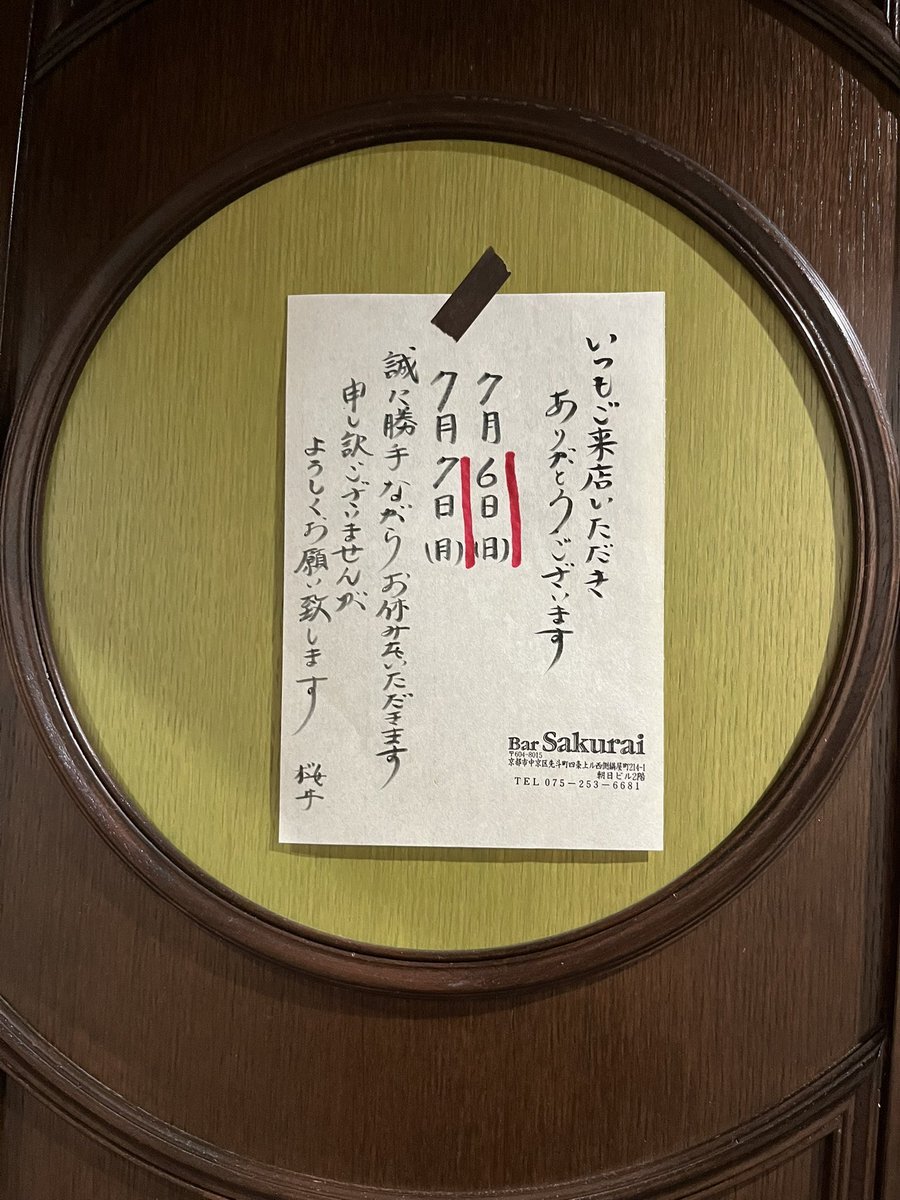 いつもご来店いただき
ありがとうございます
7月6日(日)
7月7日(月)
誠に勝手ながらお休みをいただきます
申し訳ございませんが
よろしくお願い致します
桜井
Bar Sakurai
〒604-8015
京都市中京区先斗町四条上ル西側鍋屋町214-1
朝日ビル2階
TEL 075-253-6681